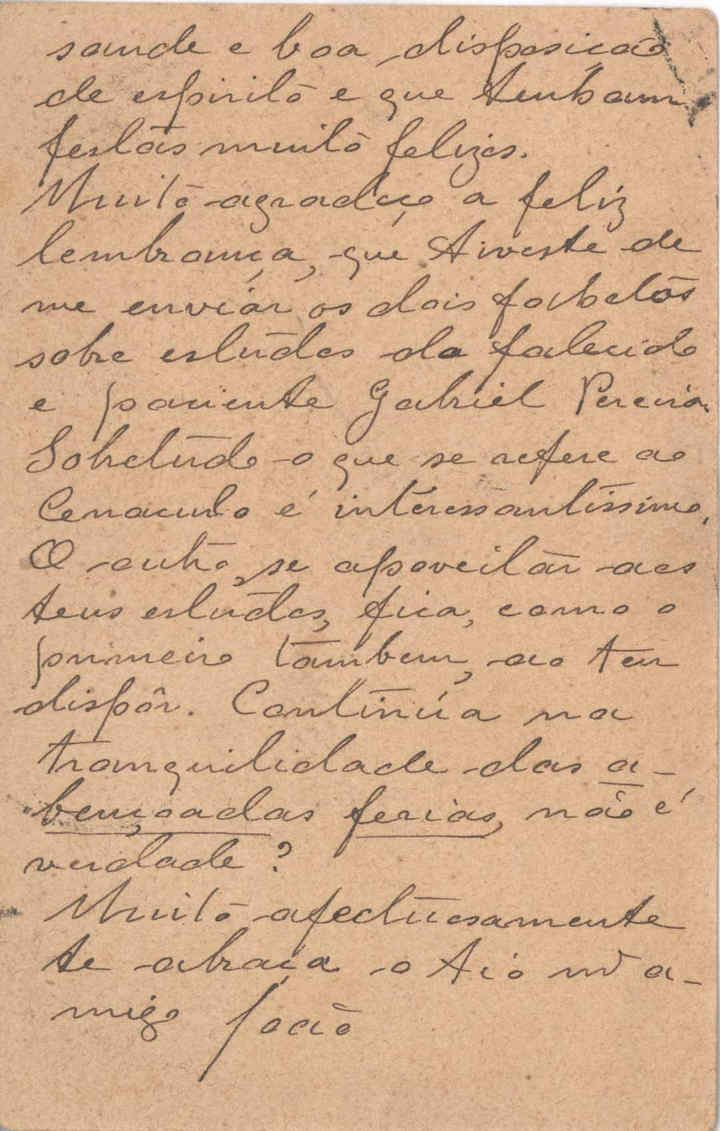 saude e boa disposição
de espirito e que tenham
festas muito felizes.
Muito agradeço a feliz
lembrança, que tiveste de
me enviar os dois folhetos
sobre estudos do falecido
e paciente Gabriel Pereira.
Sobretudo o que se refere ao
Cenaculo é interessantissimo.
O outro, se aproveitar aos
teus estudos, fica, como o
primeiro tambem, ao teu
dispôr. Continúa na
tranquilidade das a-
bençoadas ferias, não é
verdade?
Muito afectuosamente
te abraça o tio mto a-
migo João